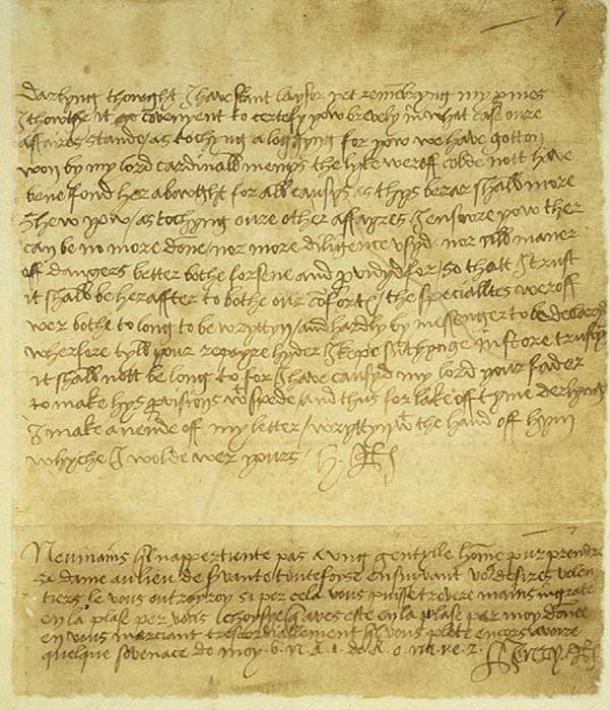 7
Darlyng thowght I have skant laysor yet remēbryng my pmes
I thowthe it go cōvenyent to certefy yow brevely in what case oure
affaires stande / as tochyng a loggyng for yow we have gotton
won by my lord cardinalls menys the lyke weroff colde nott have
bene fond her abowght for all causys as thys berar shall more
shew yow / as tochyng oure other affayres I ensvore yow ther
can be no more done / nor more diligence vsyd / nor all maner
off dangers better bothe forsene and pvydyd for / so that I trust
it shall be heraffter to bothe our cōforte / the specialltes weroff
wer bothe to long to be wryttyn / and hardly by messenger to be declaryd
wherfore tyll your repayre hyder I kepe sūthynge in store trustyng
it shall nott be long to for I have causyd my lord your fader
to make hys pvisions w spede / and thus for lake off tyme derlyng
I make a nende off my letter / wryttyn wt the hand off hym
whyche I wolde wer yours H. R
Neumains qel nappertiente pas a vng gentylle hōme pur prendre
sa dame au lieu de svante touteforse ensuivant vos desires volen
tiers le vous outroyroy si per cela vous puisse trovere mains ingrate
en la plase per vous
en vous merciant trescordiallement qil vous plete encors avoire
quelque sovenace de moy . 6 . n . A . 1 . de A . o . na . ve . z .
Henry R